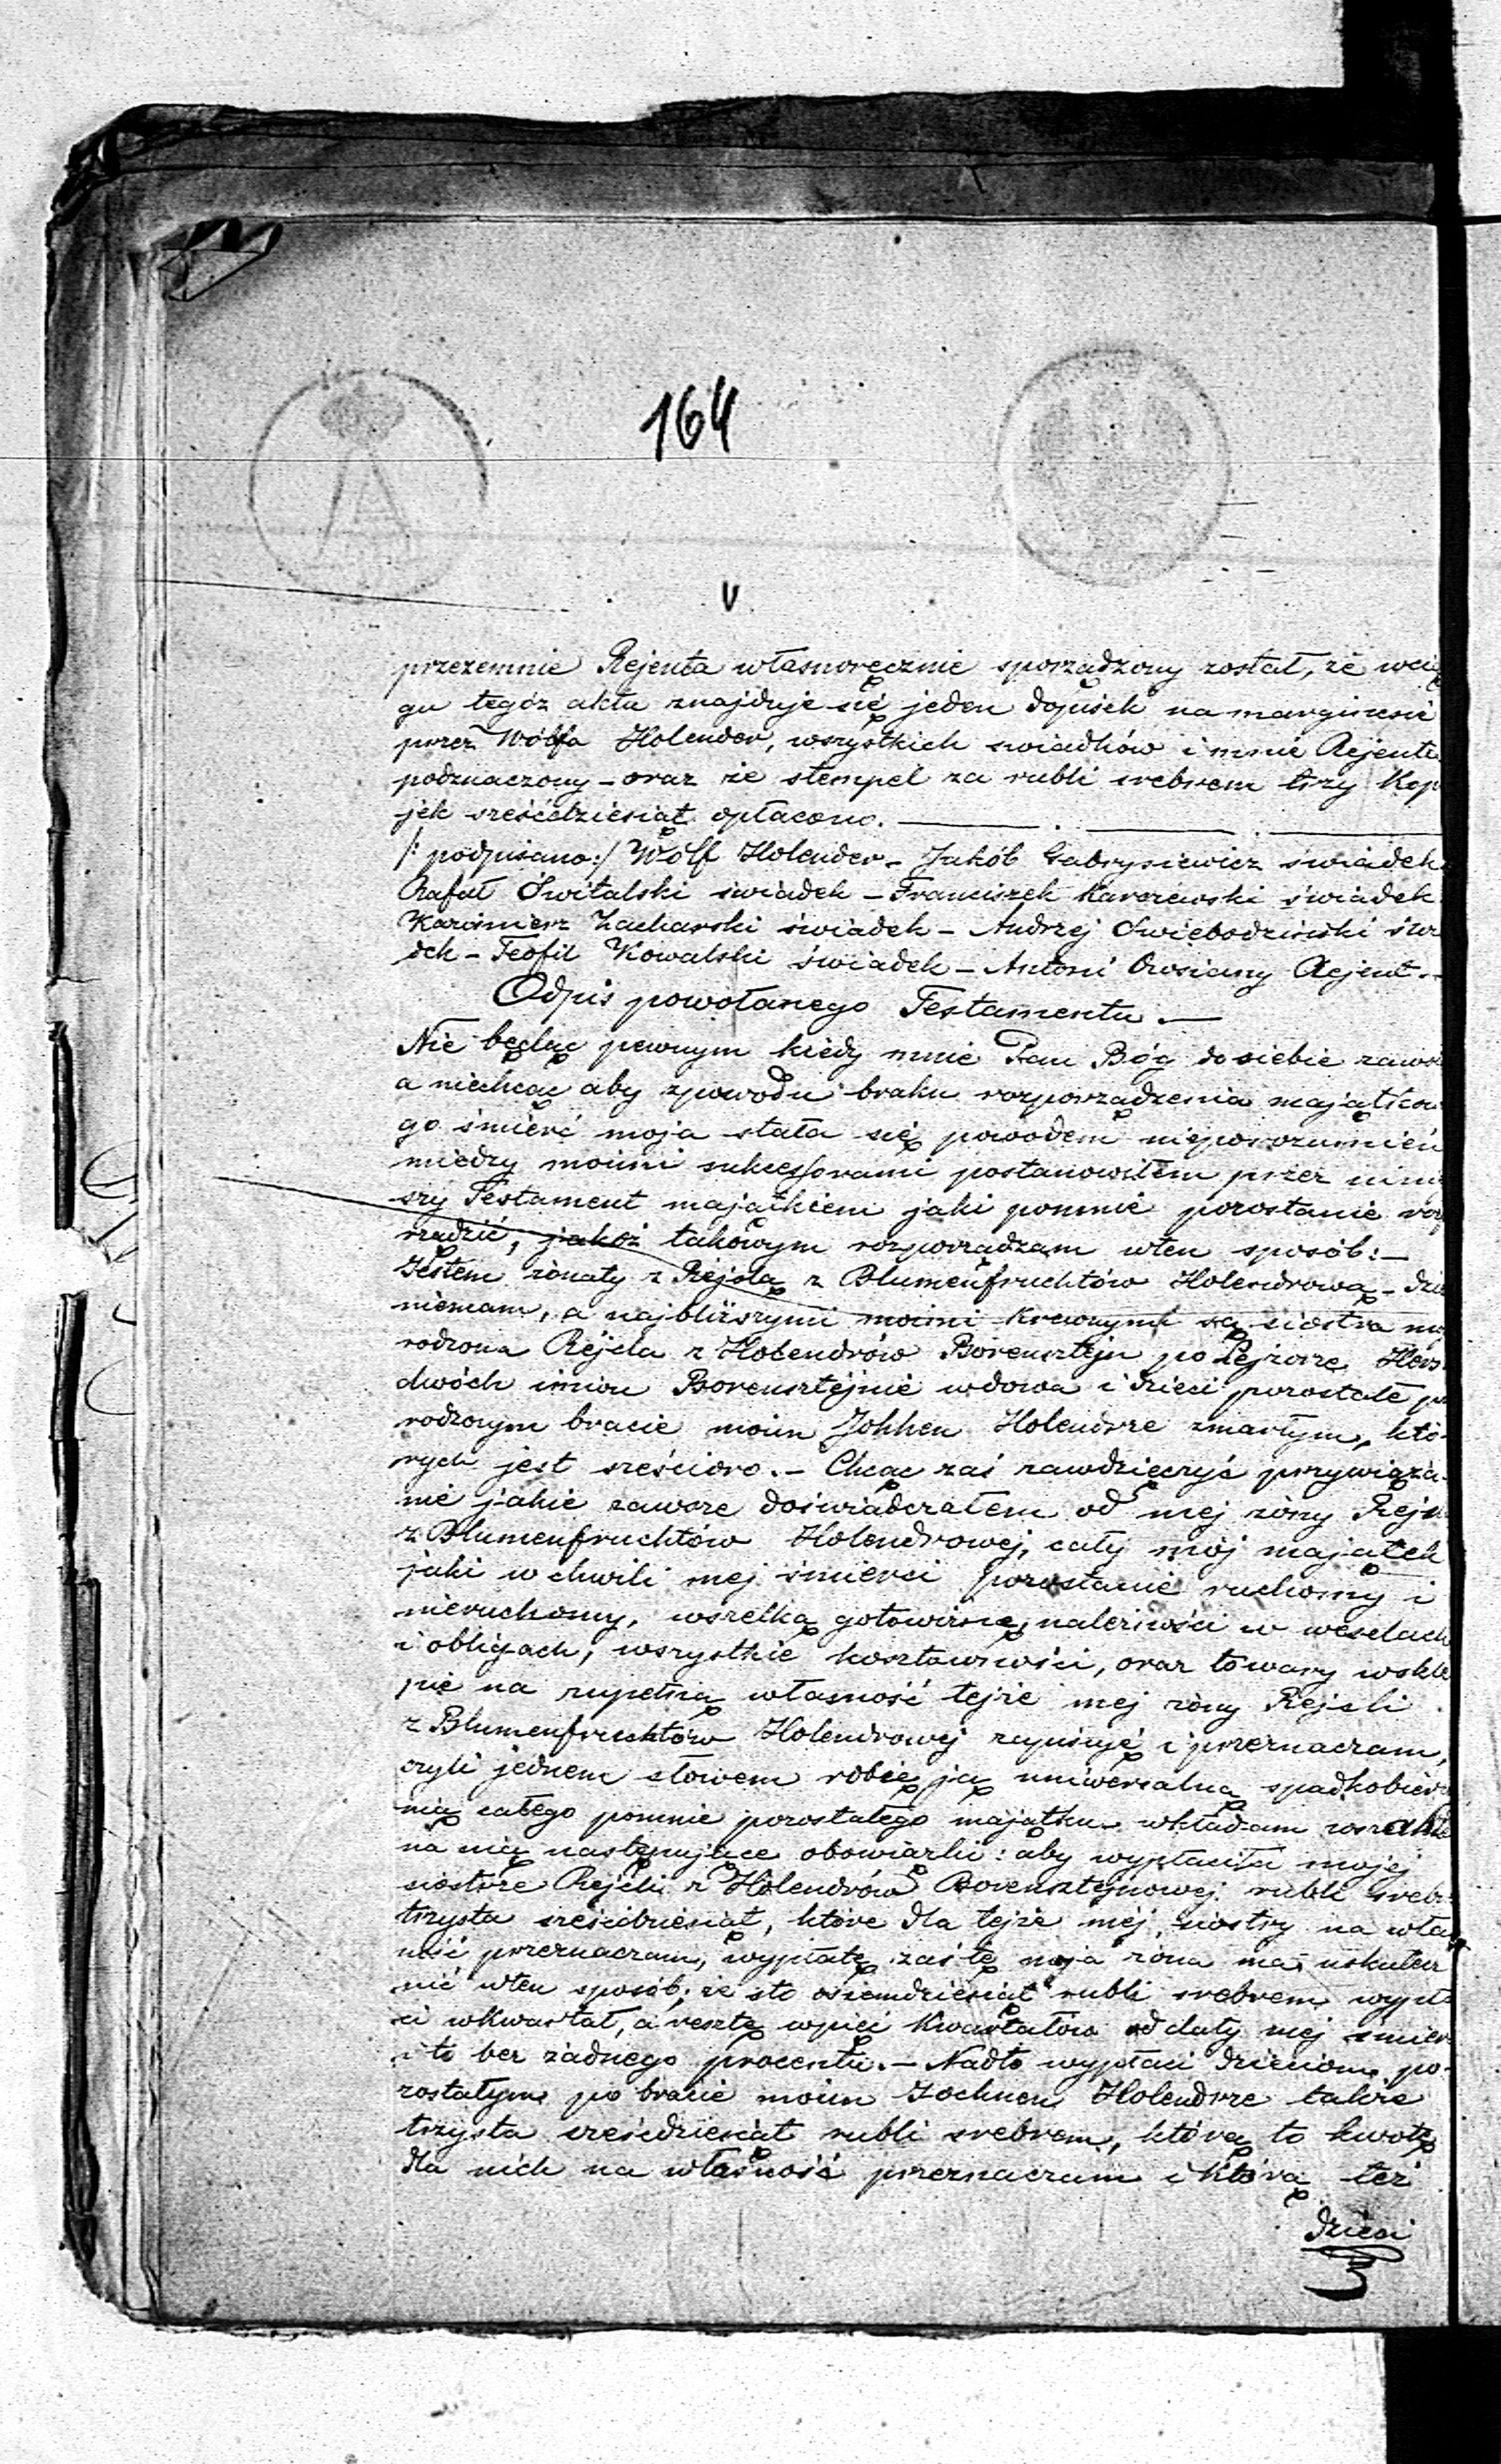 164
V
przezemnie Rejenta własnoręcznie sporządzony został, że wcią
gu tegóż aktu znajduje się jeden dopisek na marginesie
przez Wolfa Holender, wszystkich świadków i mnie Rejenta
podznaczony – oraz że stempel za rubli srebrem trzy Kop
jek sześćdziesiąt opłacono.
/: podpisano:/ Wolf Holender – Jakób Gabrysiewicz świadek
Rafał Świtalski świadek – Franciszek Karczewski świadek
Kazimierz Zacharski świadek – Andrzej Świebodziński świa
dek – Teofil Kowalski świadek – Antoni Owsiany Rejent. –
Odpis powołanego Testamentu. –
Nie będąc pewnym kiedy mnie Pan Bóg do siebie zawoł
a niechcąc aby zpowodu braku rozporządzenia majątkow
go śmierć moja stała się powodem nieporozumień
między moimi sukcessorami postanowiłem przez niniej
szy Testament majątkiem jaki pomnie pozostanie rozp
rządzić, jakoż takowym rozporządzam wten sposób: –
Jestem żonaty z Rejslą z Blumenfruchtów Holendrową – dzie
niemam, a najbliższymi moimi krewnymi są siostra mo
rodzona Rejela z Holendrów Borensztejn po Lejzorze Hersz
dwóch imion Borensztejnie wdowa i dzieci pozostałe po
rodzonym bracie moim Johhen Holendrze zmarłym, któ-
rych jest sześcioro. – Chcąc zaś zawdzięczyć przywiąza-
nie jakie zawsze doświadczałem od mej żony Rejs
z Blumenfruchtów Holendrowej, cały mój majątek
jaki w chwili mej śmierci pozostanie ruchomy i
nieruchomy, wszelką gotowiznę, należności w wexlach
i obligach, wszystkie kosztowności, oraz towary wskle
pie na zupełną własność tejże mej żony Rejsli
z Blumenfruchtów Holendrowej zapisuję i przeznaczam,
czyli jednem słowem robię ją uniwersalną spadkobierc
nią całego pomnie pozostałego majątku – wkładam wszakże
na nią następujące obowiązki: aby wypłaciła mojej
siostrze Rejeli z Holendrów Borensztejnowej rubli sreb
trzysta sześćdziesiąt, które dla tejże mej siostry na włas
ność przeznaczam, wypłatę zaś tę moja żona ma uskutecz
nić wten sposób; że sto ośiemdziesiąt rubli srebrem wypła
ci wkwartał, a resztę wpięć Kwartałów od daty mej śmier
i to bez żadnego procentu. – Nadto wypłaci dzieciom po-
zostałym po bracie moim Jochnen Holendrze także
trzysta sześćdziesiąt rubli srebrem, którą to kwotę
dla nich na własność przeznaczam i którą też
dzieci